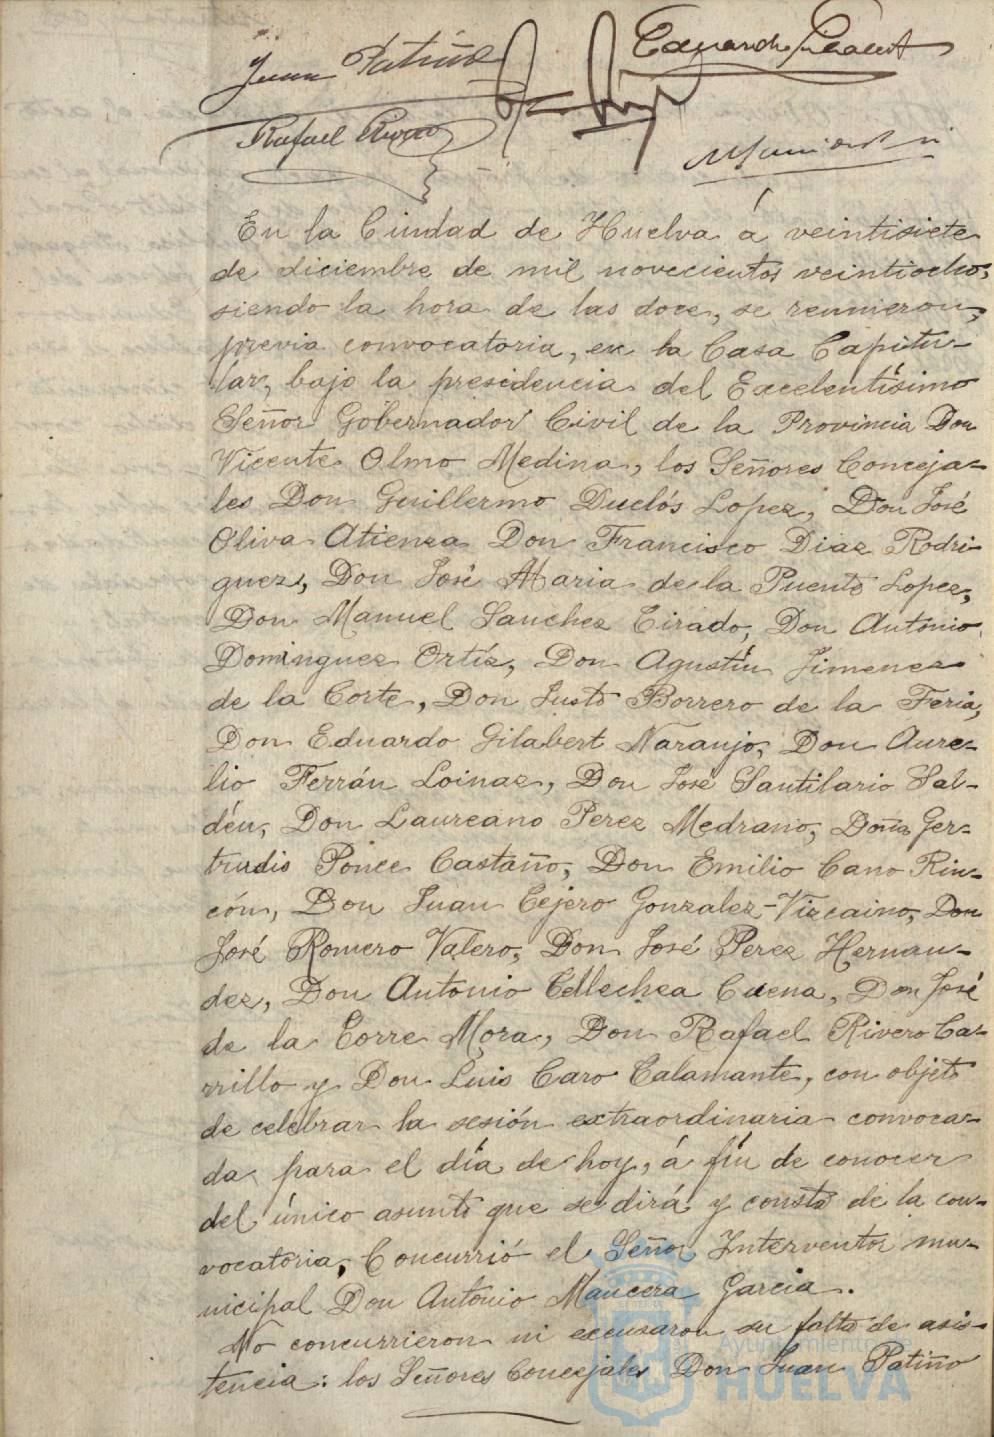 Juan Patiño
Eduardo Gilabert
Rafael Rivero
En la Ciudad de Huelva á veintisiete
de diciembre de mil novecientos veintiocho,
siendo la hora de las doce, se reunieron,
previa convocatoria, en la Casa Capitu-
lar, bajo la presidencia del Excelentísimo
Señor Gobernador Civil de la Provincia Don
Vicente Olmo Medina, los Señores Conceja-
les Don Guillermo Duclós Lopez, Don José
Oliva Atienza Don Francisco Diaz Rodri-
guez, Don José Maria de la Puente Lopez,
Don Manuel Sanchez Tirado, Don Antonio
Dominguez Ortíz, Don Agustín Jimenez
de la Corte, Don Justo Borrero de la Feria,
Don Eduardo Gilabert Naranjo, Don Aure-
lio Ferrán Loinaz, Don José Santilario Sal-
dén, Don Laureano Perez Medrano, Doña Ger-
trudis Ponce Castaño, Don Emilio Cano Rin-
cón, Don Juan Tejero Gonzalez-Vizcaino, Don
José Romero Valero, Don José Perez Hernan-
dez, Don Antonio Tellechea Cuena, Don José
de la Torre Mora, Don Rafael Rivero Ca-
rrillo y Don Luis Caro Talamante, con objeto
de celebrar la sesión extraordinaria convoca-
da para el día de hoy, á fín de conocer
del único asunto que se dirá y consta de la con-
vocatoria, Concurrió el Señor Interventor mu-
nicipal Don Antonio Mancera Garcia.
No concurrieron ni excusaron su falta de asis-
tencia: los Señores Concejales Don Juan Patiño
Ayuntamiento de
HUELVA